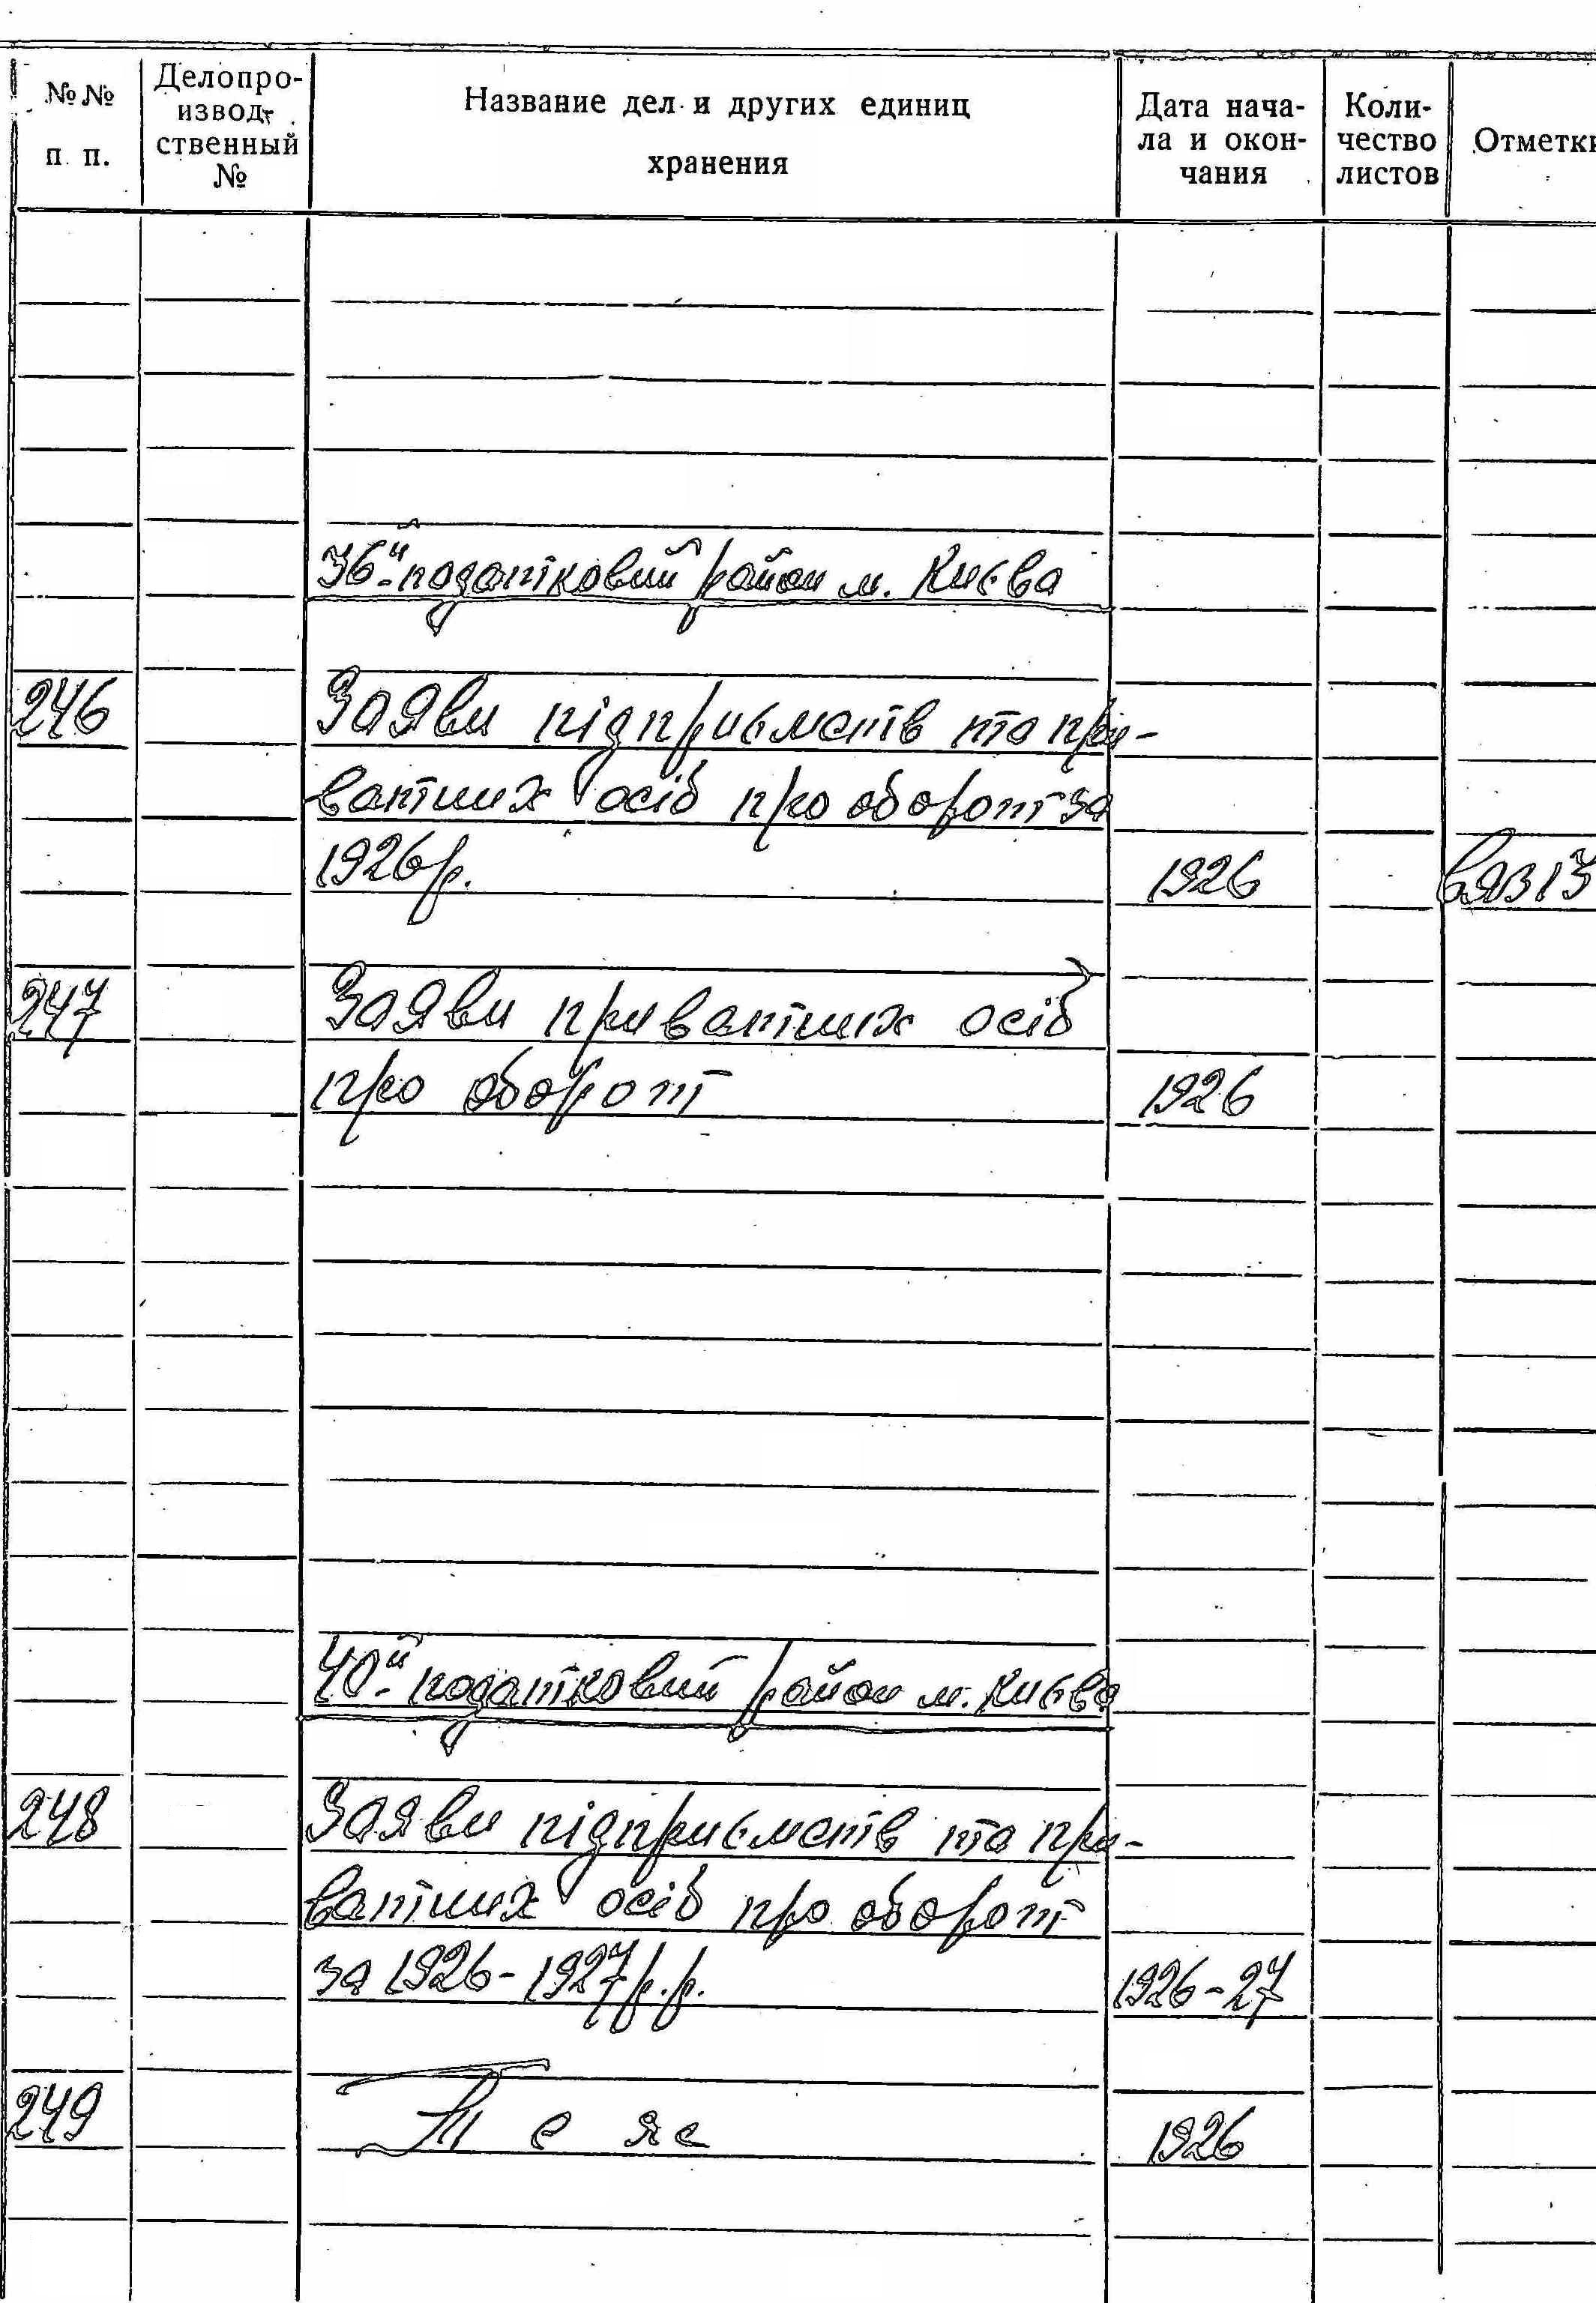 №№ п. п.
Делопро-
извод-
ственный
№
Название дел и других единиц
хранения
Дата нача-
ла и окон-
чания
Коли-
чество
листов
Отметки
36й податковий район м. Києва
246 Заяви підприємств та при-
ватних осіб про оборот за
1926 р. 1926 вяз 13
247 Заяви приватних осіб
про оборот 1926
40й податковий район м. Києва
248 Заяви підприємств та при-
ватних осіб про оборот
за 1926-1927 р.р. 1926-27
249 Теж 1926